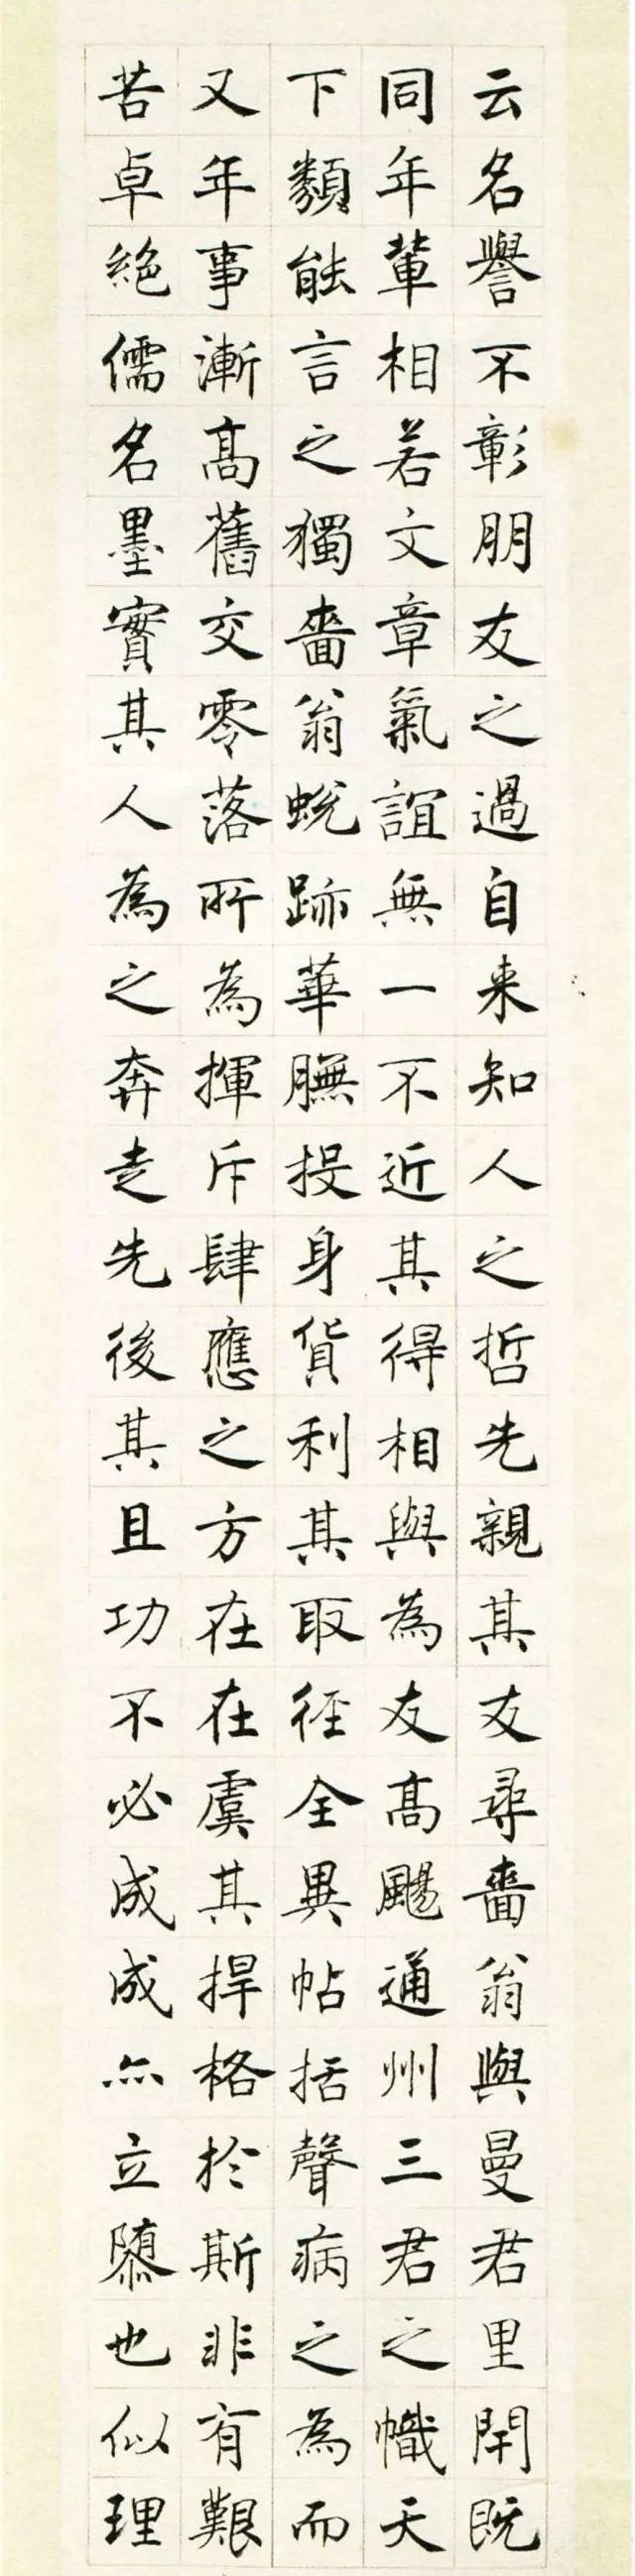 云名譽不彰朋友之過自来知人之哲先親其友尋嗇翁與曼君里閈既
同年輩相若文章氣誼無一不近其得相與為友高颺通州三君之幟天
下類能言之獨嗇翁蛻跡華膴投身貨利其取徑全異帖括聲病之為而
又年事漸高舊交零落所為揮斥肆應之方在在虞其捍格於斯非有艱
苦卓絶儒名墨實其人為之奔走先後其且功不必成成亦立隳也似理